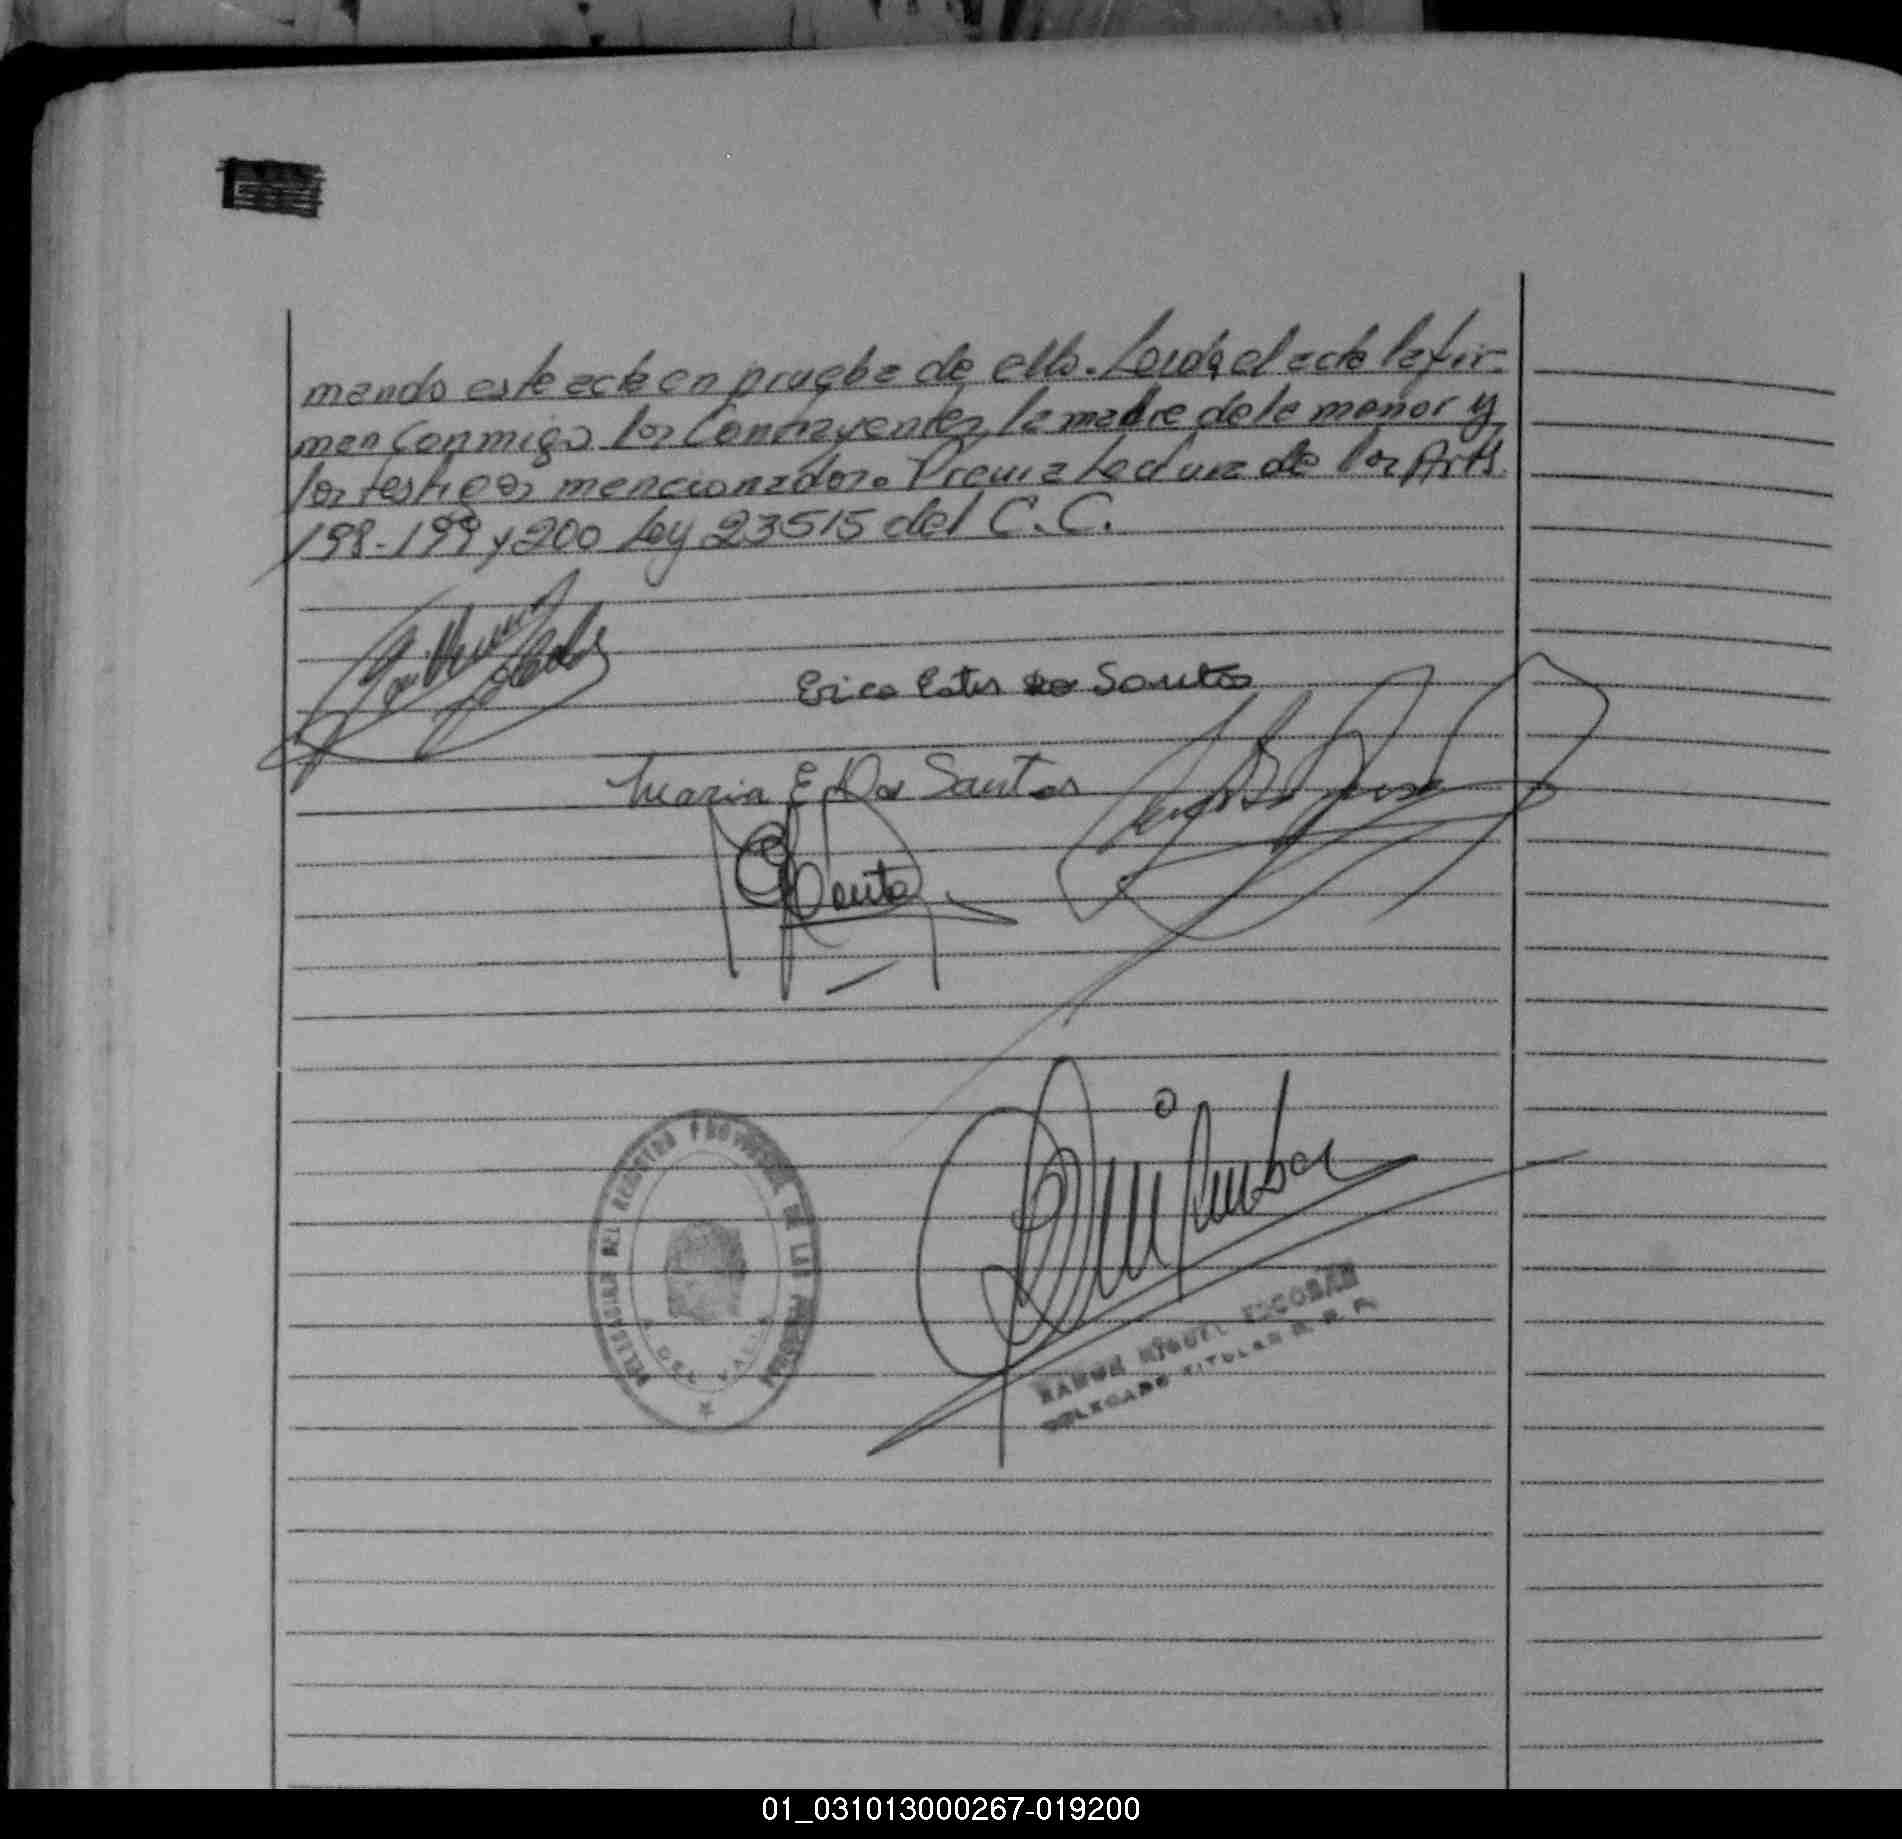 mando este acta en prueba de ello. Leida el acta la fir-
man conmigo los Contrayentes, la madre de la menor y
los testigos mencionados. Previa lectura de los Arts
198-199 y 200 Ley 23515 del C.C.
Erica Ester Do Santos
Maria E. Dos Santos
DELEGACION DEL REGISTRO PROVINCIAL DE LAS PERSONAS
DEL VALLE
RAMON MIGUEL ESCOBAR
DELEGADO TITULAR R. P. P.
01_031013000267-019200